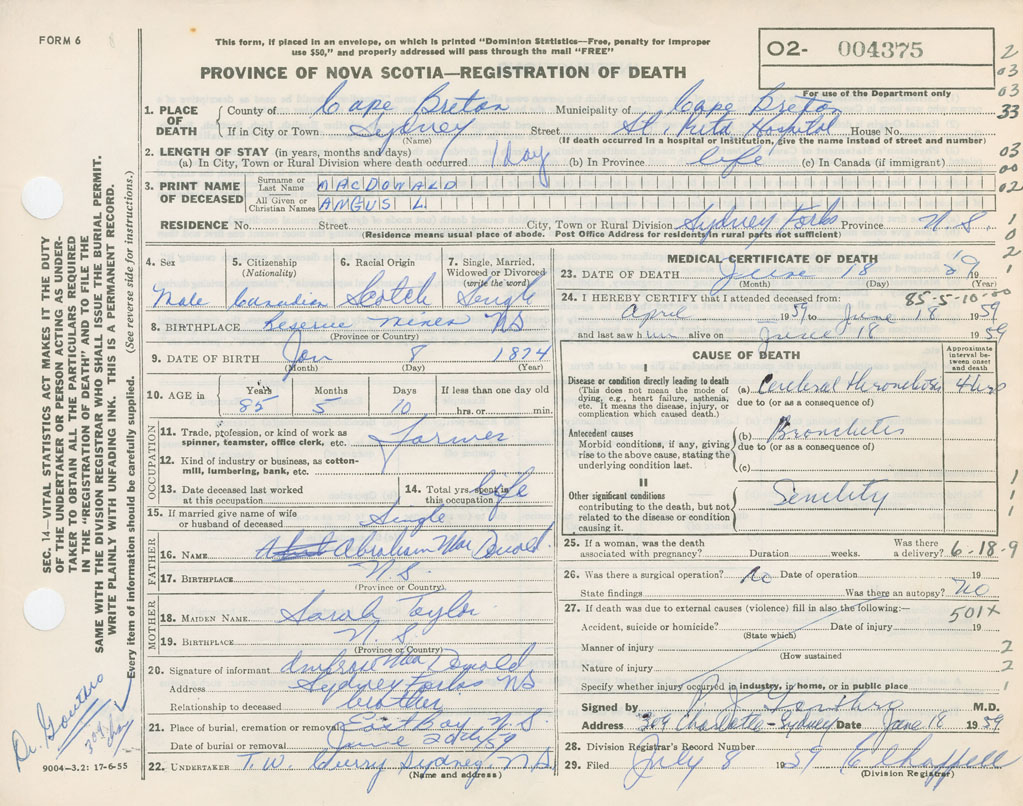 FORM 6 8
This form, if placed in an envelope, on which is printed "Dominion Statistics—Free, penalty for improper
use $50," and properly addressed will pass through the mail "FREE"
O2- 004375
For use of the Department only
2
03
03
33
03
00
02
1
0
2
1
PROVINCE OF NOVA SCOTIA—REGISTRATION OF DEATH
1. PLACE OF DEATH County of Cape Breton Municipality of Cape Breton
If in City or Town Sydney Street St. Rita Hospital House No.
(Name) (If death occurred in a hospital or institution, give the name instead of street and number)
2. LENGTH OF STAY (in years, months and days)
(a) In City, Town or Rural Division where death occurred 1 Day (b) In Province life (c) In Canada (if immigrant)
3. PRINT NAME OF DECEASED Surname or Last Name MACDONALD
All Given or Christian Names ANGUS L.
RESIDENCE No. Street City, Town or Rural Division Sydney Forks Province N.S.
(Residence means usual place of abode. Post Office Address for residents in rural parts not sufficient)
4. Sex 5. Citizenship (Nationality) 6. Racial Origin 7. Single, Married, Widowed or Divorced (write the word)
Male Canadian Scotch Single
8. BIRTHPLACE Reserve Mines NS
(Province or Country)
9. DATE OF BIRTH Jan 8 1874
(Month) (Day) (Year)
10. AGE in Years Months Days If less than one day old
85 5 10 hrs. or min.
OCCUPATION
11. Trade, profession, or kind of work as spinner, teamster, office clerk, etc. Farmer
12. Kind of industry or business, as cotton-mill, lumbering, bank, etc.
13. Date deceased last worked at this occupation 14. Total yrs. spent in this occupation life
15. If married give name of wife or husband of deceased Single
FATHER
16. NAME Abraham MacDonald
17. BIRTHPLACE N.S.
(Province or Country)
MOTHER
18. MAIDEN NAME Sarah Taylor
19. BIRTHPLACE N.S.
(Province or Country)
20. Signature of informant Ambrose MacDonald
Address Sydney Forks NS
Relationship to deceased brother
21. Place of burial, cremation or removal East Bay N.S.
Date of burial or removal June 20th/59
22. UNDERTAKER T.W. Curry Sydney N.S.
(Name and address)
MEDICAL CERTIFICATE OF DEATH
23. DATE OF DEATH June 18 1959
(Month) (Day) (Year)
24. I HEREBY CERTIFY that I attended deceased from: 85-5-10-00
April 1959 to June 18 1959
and last saw him alive on June 18 1959
CAUSE OF DEATH Approximate interval between onset and death
I
Disease or condition directly leading to death
(This does not mean the mode of dying, e.g., heart failure, asthenia, etc. It means the disease, injury, or complication which caused death.)
(a) Cerebral thrombosis 4 hrs
due to (or as a consequence of)
Antecedent causes
Morbid conditions, if any, giving rise to the above cause, stating the underlying condition last.
(b) Bronchitis
due to (or as a consequence of)
(c)
II
Other significant conditions
contributing to the death, but not related to the disease or condition causing it.
Senility
1
1
1
25. If a woman, was the death associated with pregnancy? Duration weeks. Was there a delivery? 6-18-9
26. Was there a surgical operation? No Date of operation 19
State findings Was there an autopsy? No
27. If death was due to external causes (violence) fill in also the following:— 501X
Accident, suicide or homicide? Date of injury 19
(State which)
Manner of injury 2
(How sustained)
Nature of injury 2
Specify whether injury occurred in industry, in home, or in public place 1
Signed by M.D.
Address 309 Charlotte - Sydney Date June 18 1959
28. Division Registrar's Record Number
29. Filed July 8 1959 C Chappell
(Division Registrar)
SEC. 14—VITAL STATISTICS ACT MAKES IT THE DUTY
OF THE UNDERTAKER OR PERSON ACTING AS UNDER-
TAKER TO OBTAIN ALL THE PARTICULARS REQUIRED
IN THE "REGISTRATION OF DEATH" AND FILE THE
SAME WITH THE DIVISION REGISTRAR WHO SHALL ISSUE THE BURIAL PERMIT.
WRITE PLAINLY WITH UNFADING INK. THIS IS A PERMANENT RECORD.
Every item of information should be carefully supplied. (See reverse side for instructions.)
Dr. Gouthro
309 Char
9004-3.2: 17-6-55